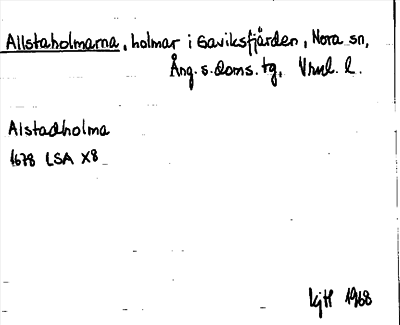 Allstaholmarna, holmar i Gaviksfjärden, Nora sn,
Ång. s. doms. tg. Vnl. l.
Alstadholma
1678 LSA X8
KjH 1968